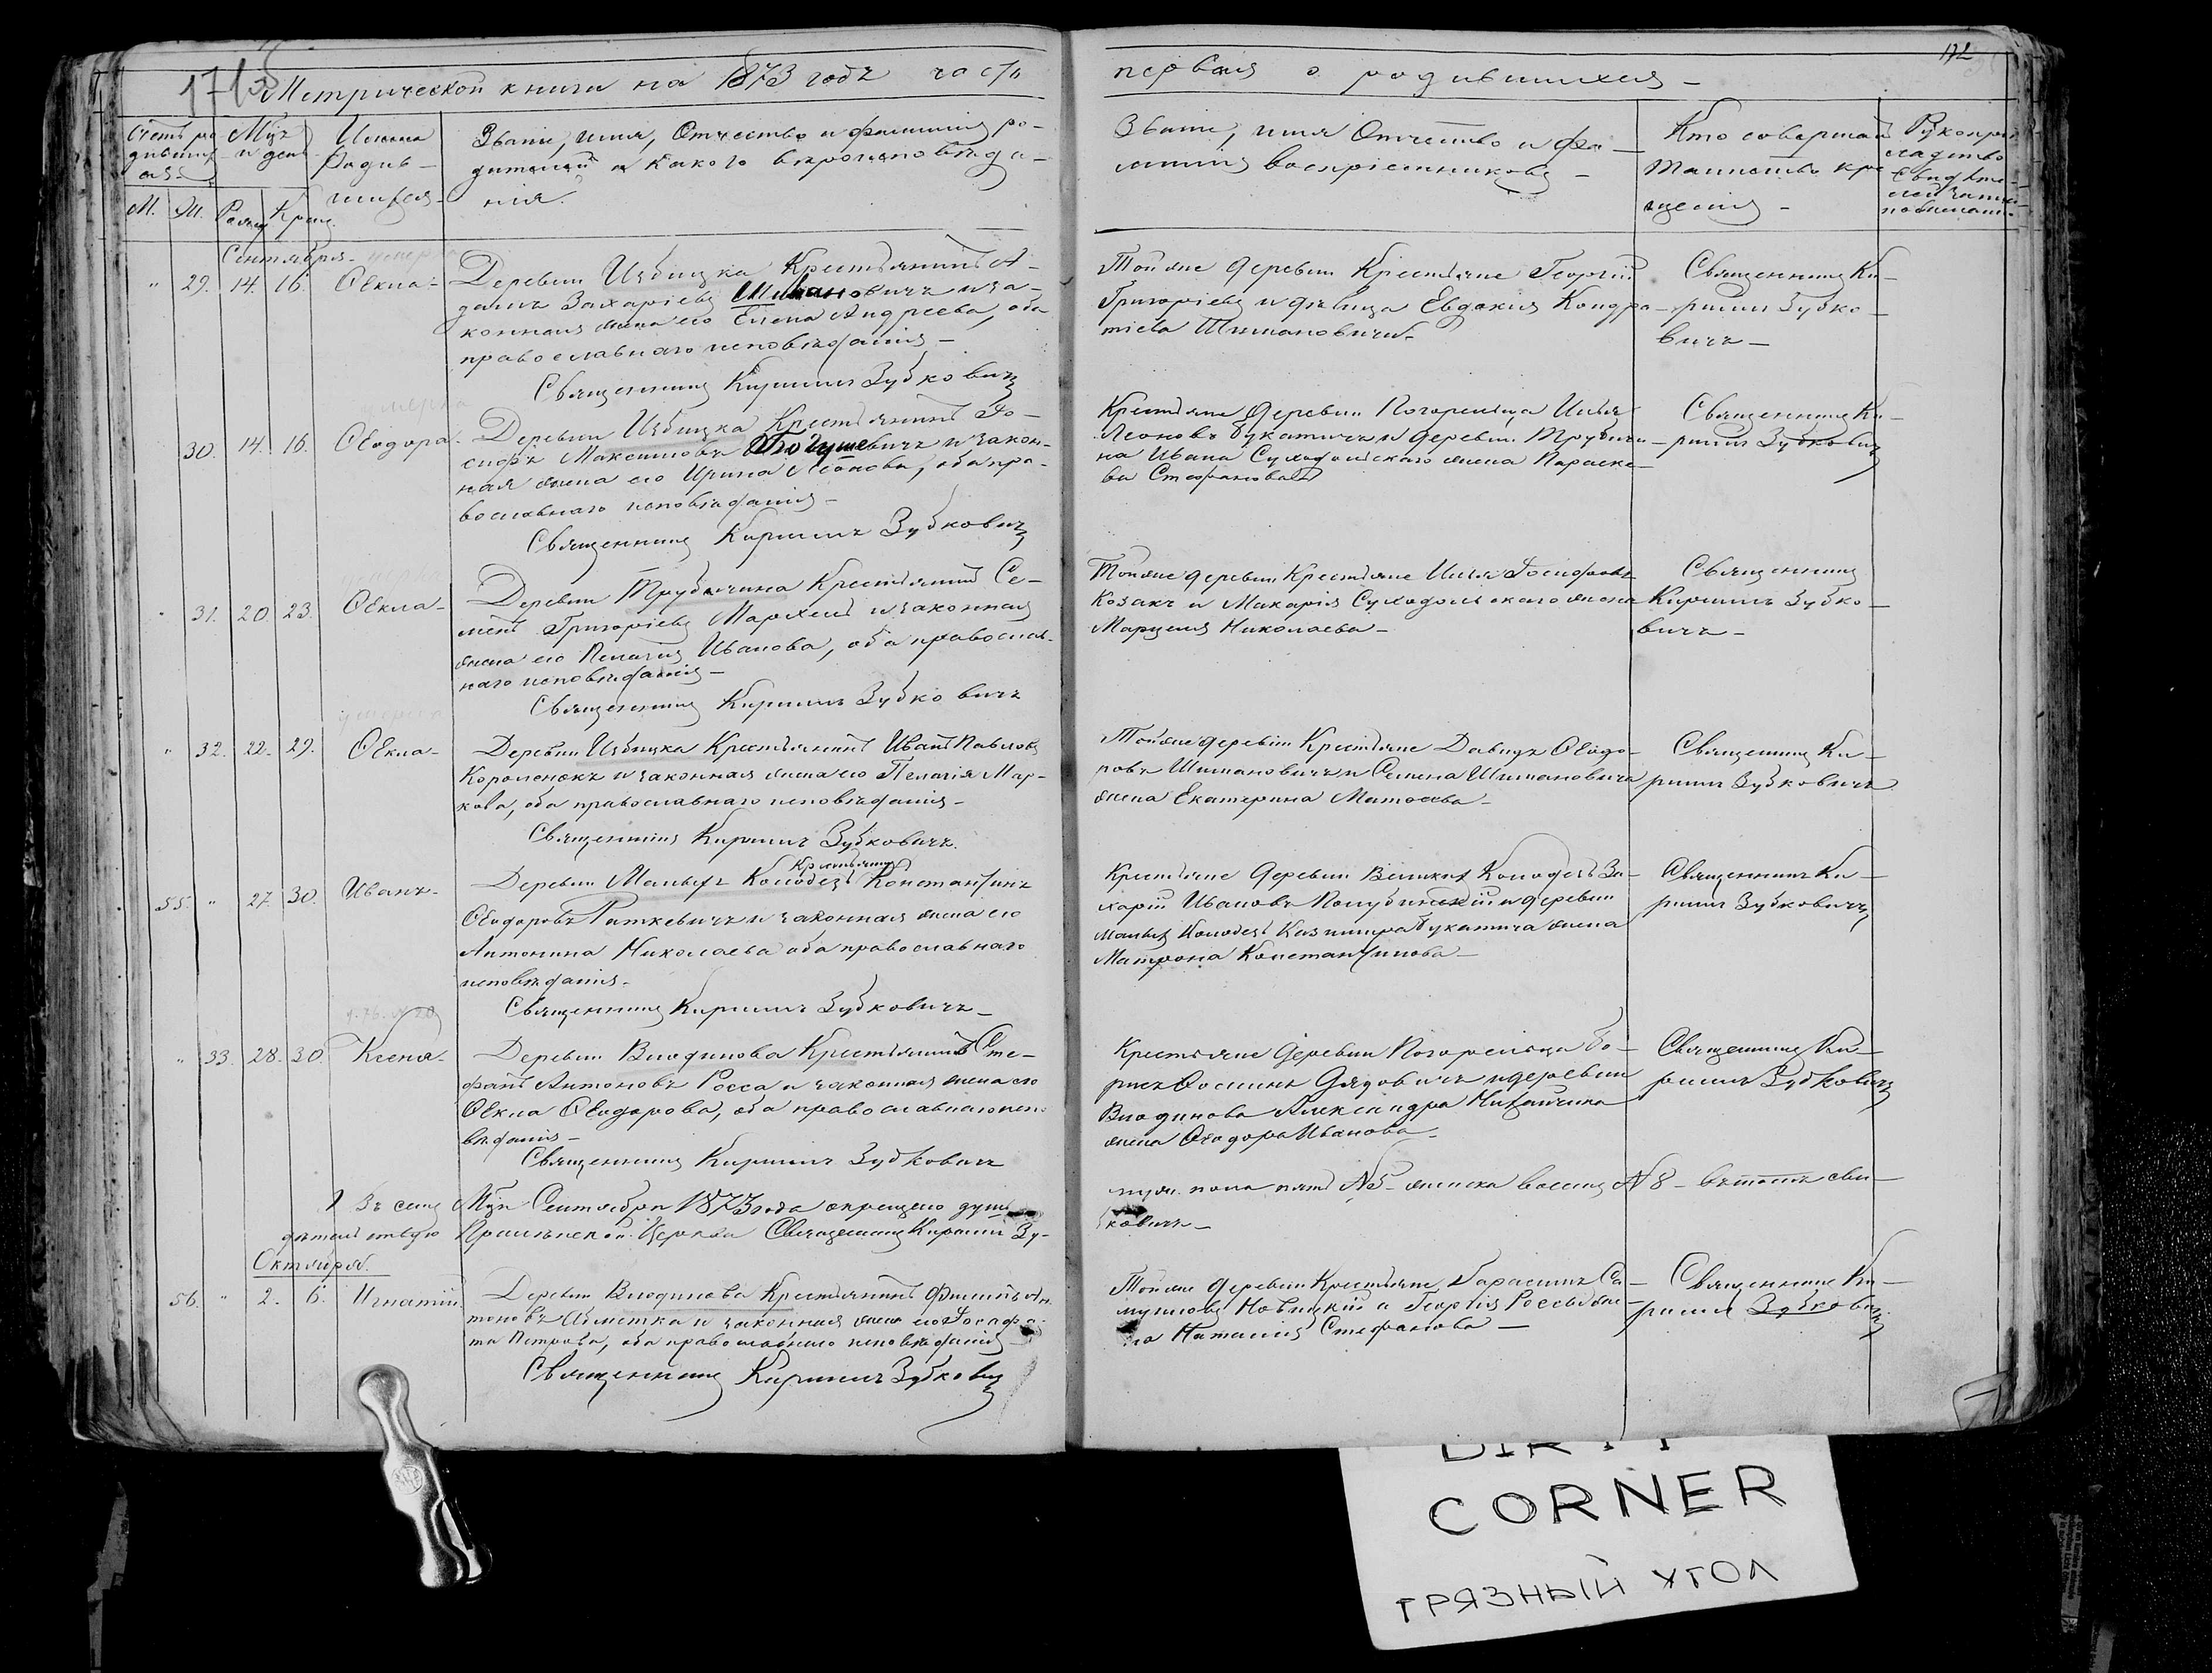 171
172
Метрической книги на 1873 годъ часть
первая о родившихся
Счетъ ро-
дивших-
ся.
М. Ж.
Мцъ
и день
Рожд. Крещ.
Имена
Родив-
шихся.
Званіе, имя, Отчество и фамилія ро-
дителей и какого вероисповѣда-
нія.
Званіе, имя Отчество и фа-
милія воспріемниковъ
Кто совершалъ
таинство кре-
щенія
Рукопри-
кладство
свидѣте-
лей
Сентября
" 29. 14. 16. Ѳекла
Деревни Избицка Крестьянинъ А-
дамъ Захаріевъ Шимановичъ и за-
конная жена его Елена Андреева, оба
православнаго исповѣданія
Священникъ Кириллъ Зубковичъ
Тойже деревни Крестьяне Георгій
Григоріевъ и дѣвица Евдокія Кондра-
тіева Шимановичи
Священникъ Ки-
риллъ Зубко-
вичъ
умерла
30. 14. 16. Ѳеодора
Деревни Избицка Крестьянинъ Іо-
сифъ Максимовъ Богушевичъ и закон-
ная жена его Ирина Леонова, оба пра-
вославнаго исповѣданія
Священникъ Кириллъ Зубковичъ
Крестьяне деревни Погорельца Илья
Леоновъ Букатичъ и деревни Трубчи-
на Ивана Суходольскаго жена Параске-
ва Стефанова
Священникъ Ки-
риллъ Зубковичъ
31. 20. 23. Ѳекла
Деревни Трубчина Крестьянинъ Се-
менъ Григоріевъ Мархель и законная
жена его Пелагія Иванова, оба православ-
наго исповѣданія
Священникъ Кириллъ Зубковичъ
Тойже деревни Крестьяне Илья Іосифовъ
Козакъ и Макарія Суходольскаго жена
Марцеля Николаева
Священникъ
Кириллъ Зубко-
вичъ
умерла
" 32. 22. 29. Ѳекла
Деревни Избицка Крестьянинъ Иванъ Павловъ
Короленокъ и законная жена его Пелагія Мар-
кова, оба православнаго исповѣданія
Священникъ Кириллъ Зубковичъ.
Тойже деревни Крестьяне Давидъ Ѳеодо-
ровъ Шимановичъ и Семена Шимановича
жена Екатерина Матѳеева
Священникъ Ки-
риллъ Зубковичъ
55. " 27. 30. Иванъ
Крестьянинъ
Деревни Малыхъ Колодезь Константинъ
Ѳеодоровъ Раткевичъ и законная жена его
Антонина Николаева оба православнаго
исповѣданія
Священникъ Кириллъ Зубковичъ
Крестьяне деревни Великихъ Колодезь За-
харій Ивановъ Голубинскій и деревни
Малыхъ Колодезь Казимира Букатича жена
Матрона Константинова
Священникъ Ки-
риллъ Зубковичъ
" 33. 28. 30. Ксенія
Деревни Влодинова Крестьянинъ Сте-
фанъ Антоновъ Росса и законная жена его
Ѳекла Ѳеодорова, оба православнаго испо-
вѣданія
Священникъ Кириллъ Зубковичъ
Крестьяне деревни Погорельца Бо-
рисъ Ѳоминъ Дядовичъ и деревни
Влодинова Александра
жена Ѳеодора Иванова
Священникъ Ки-
риллъ Зубковичъ
Въ семъ Мцѣ Сентябрѣ 1873 года окрещено душъ
муж. пола пять № 5 женска восемь № 8 въ томъ сви-
дѣтельствую Церкви Священникъ Кириллъ Зу-
бковичъ
Октября.
56. " 2. 6. Игнатій
Деревни Влодинова Крестьянинъ Филипъ Ан-
тоновъ и законная жена его Іосафа-
та Петрова, оба православнаго исповѣданія
Священникъ Кириллъ Зубковичъ
Тойже деревни Крестьяне Гарасимъ Са-
муиловъ Новицкій и Георгія Россы же-
на Наталія Стефанова
Священникъ Ки-
риллъ Зубковичъ
DIRTY
CORNER
ГРЯЗНЫЙ УГОЛ